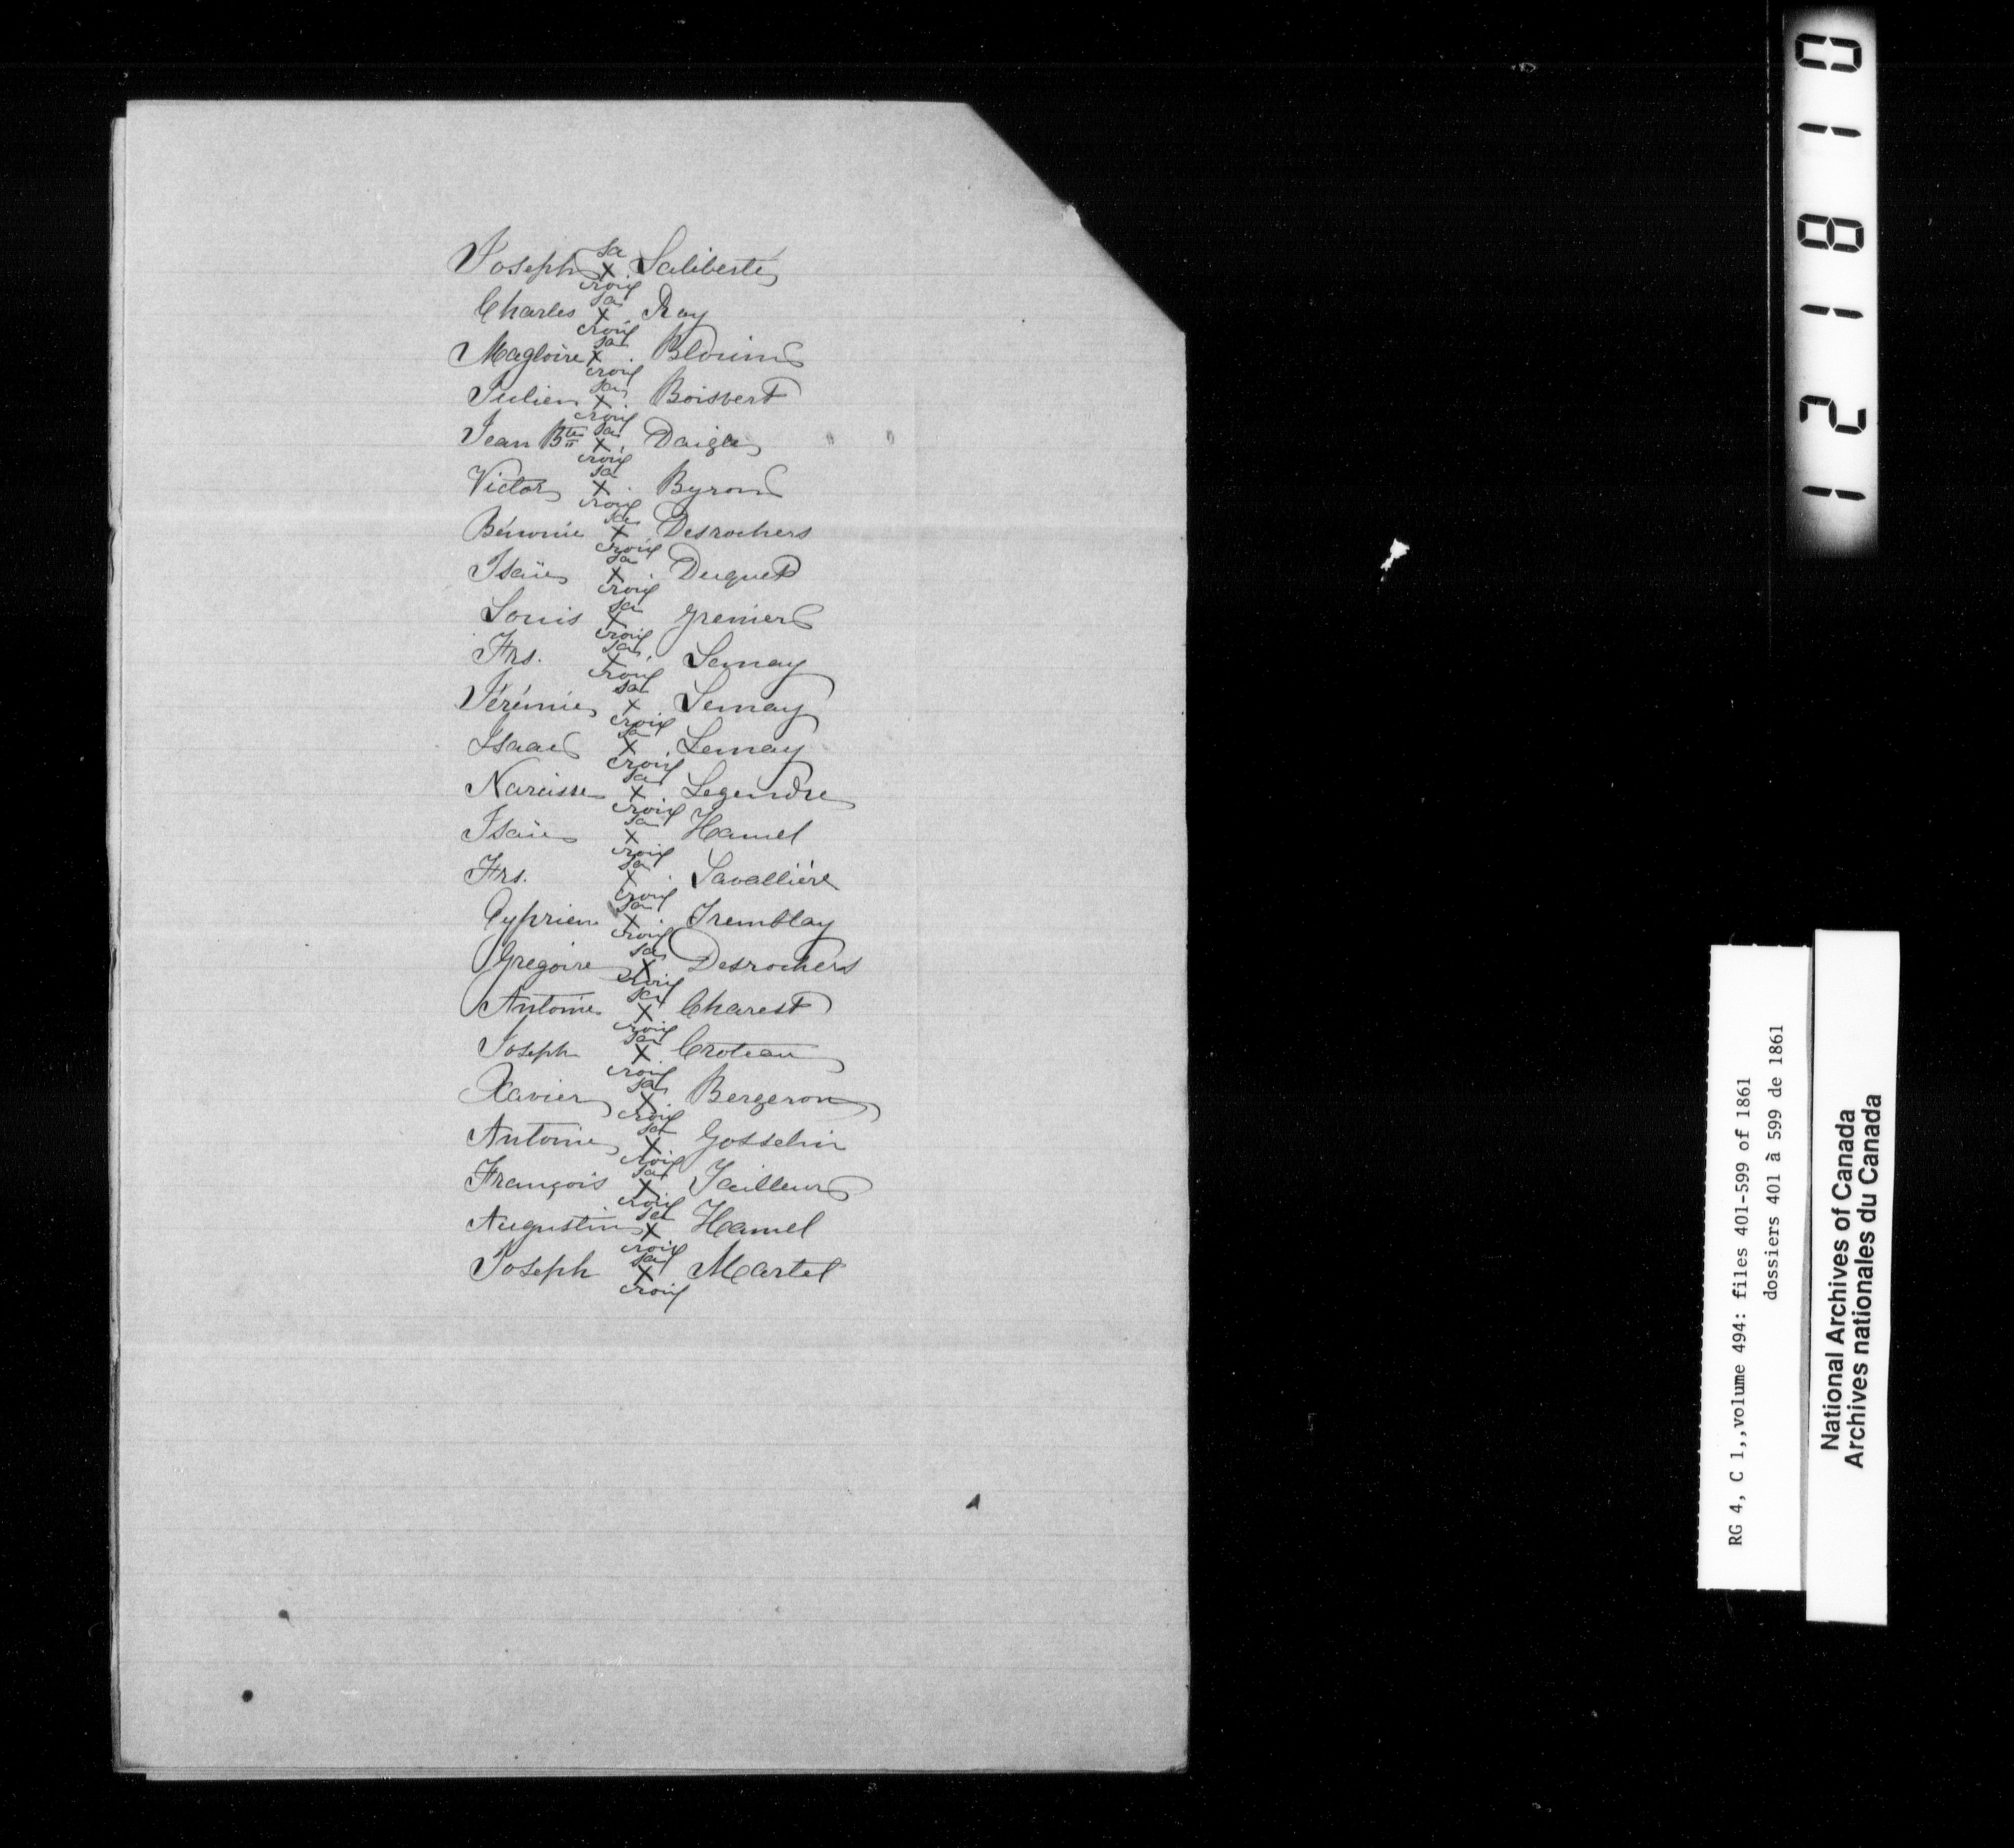 Joseph sa x croix Laliberté
Charles sa x croix Roy
Magloire sa x croix Blouin
Julien sa x croix Boisvert
Jean Bte sa x croix Daigle
Victor sa x croix Byron
Bénonie sa x croix Desrochers
Isaïe sa x croix Duquet
Louis sa x croix Grenier
Frs. sa x croix Lemay
Jérémie sa x croix Lemay
Isaac sa x croix Lemay
Narcisse sa x croix Legendre
Isaïe sa x croix Hamel
Frs. sa x croix Lavallière
Cyprien sa x croix Tremblay
Gregoire sa x croix Desrochers
Antoine sa x croix Charest
Joseph sa x croix Croteau
Xavier sa x croix Bergeron
Antoine sa x croix Gosselin
François sa x croix
Augustin sa x croix Hamel
Joseph sa x croix Martel
121810
RG 4, C 1,,volume 494: files 401-599 of 1861
dossiers 401 à 599 de 1861
National Archives of Canada
Archives nationales du Canada